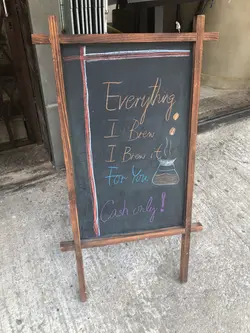 Everything
I Brew
I Brew it
For You
Cash only!